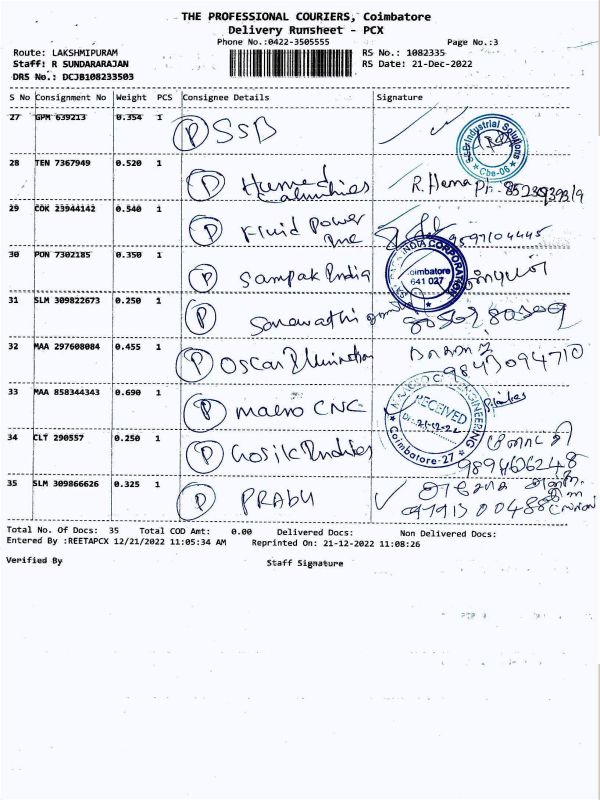 THE PROFESSIONAL COURIERS, Coimbatore
Delivery Runsheet - PCX
Phone No.:0422-3505555 Page No.:3
Route: LAKSHMIPURAM RS No.: 1082335
Staff: R SUNDARARAJAN RS Date: 21-Dec-2022
DRS No.: DCJB108233503
S No Consignment No Weight PCS Consignee Details Signature
27 GPM 639213 0.354 1 P SSB
S.S.B Industrial Solutions Cbe-06
28 TEN 7367949 0.520 1 P
R. Hema Ph.
29 COK 23944142 0.540 1 P Fluid Power
Inc
30 PON 7302185 0.350 1 P Sampak India
INDIA CORPORATION Coimbatore 641 027
31 SLM 309822673 0.250 1 P
32 MAA 297608084 0.455 1 P Oscar
9843094710
33 MAA 858344343 0.690 1 P CNC
CNC ENGINEERING RECEIVED Coimbatore-27
34 CLT 290557 0.250 1 P
9894606248
35 SLM 309866626 0.325 1 P PRABU
Total No. Of Docs: 35 Total COD Amt: 0.00 Delivered Docs: Non Delivered Docs:
Entered By :REETAPCX 12/21/2022 11:05:34 AM Reprinted On: 21-12-2022 11:08:26
Verified By Staff Signature